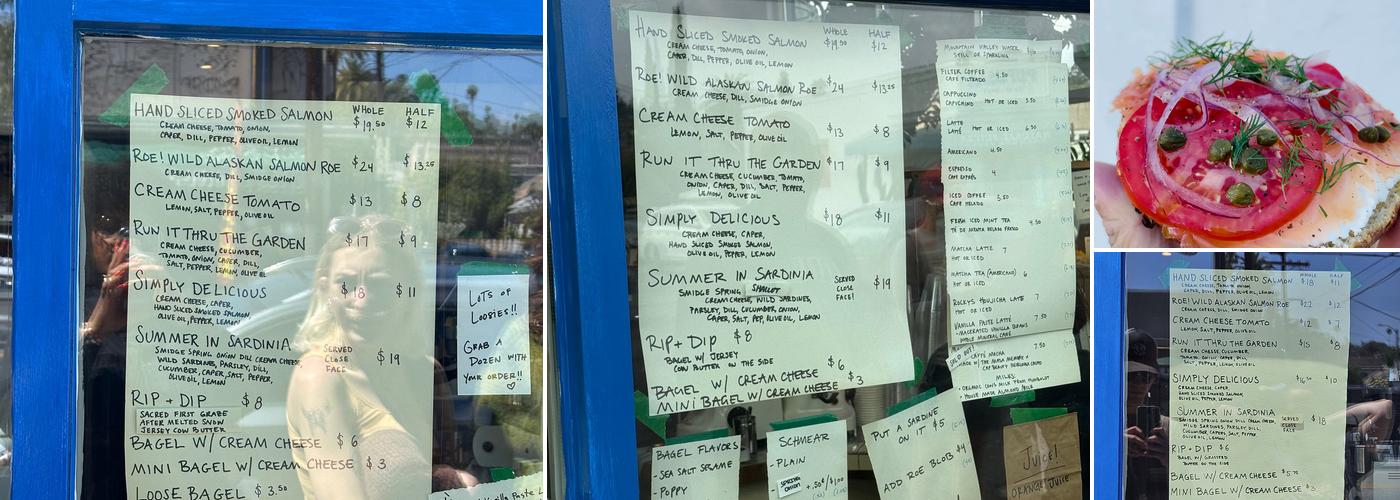 HAND SLICED SMOKED SALMON WHOLE $19.50 HALF $12
CREAM CHEESE, TOMATO, ONION,
CAPER, DILL, PEPPER, OLIVE OIL, LEMON
ROE! WILD ALASKAN SALMON ROE $24 $13.25
CREAM CHEESE, DILL, SMIDGE ONION
CREAM CHEESE TOMATO $13 $8
LEMON, SALT, PEPPER, OLIVE OIL
RUN IT THRU THE GARDEN $17 $9
CREAM CHEESE, CUCUMBER,
TOMATO, ONION, CAPER, DILL,
SALT, PEPPER, LEMON, OLIVE OIL
SIMPLY DELICIOUS $18 $11
CREAM CHEESE, CAPER,
HAND SLICED SMOKED SALMON,
OLIVE OIL, PEPPER, LEMON
SUMMER IN SARDINIA SERVED CLOSE FACE $19
SMIDGE SPRING ONION DILL CREAM CHEESE
WILD SARDINES, PARSLEY, DILL,
CUCUMBER, CAPER, SALT, PEPPER,
OLIVE OIL, LEMON
RIP + DIP $8
SACRED FIRST GRAZE
AFTER MELTED SNOW
JERSEY COW BUTTER
BAGEL W/ CREAM CHEESE $6
MINI BAGEL W/ CREAM CHEESE $3
LOOSE BAGEL $3.50
LOTS OF
LOOSIES!!
GRAB A
DOZEN WITH
YOUR ORDER!!
HAND SLICED SMOKED SALMON WHOLE $19.50 HALF $12
CREAM CHEESE, TOMATO, ONION,
CAPER, DILL, PEPPER, OLIVE OIL, LEMON
ROE! WILD ALASKAN SALMON ROE $24 $13.25
CREAM CHEESE, DILL, SMIDGE ONION
CREAM CHEESE TOMATO $13 $8
LEMON, SALT, PEPPER, OLIVE OIL
RUN IT THRU THE GARDEN $17 $9
CREAM CHEESE, CUCUMBER, TOMATO,
ONION, CAPER, DILL, SALT, PEPPER,
LEMON, OLIVE OIL
SIMPLY DELICIOUS $18 $11
CREAM CHEESE, CAPER,
HAND SLICED SMOKED SALMON,
OLIVE OIL, PEPPER, LEMON
SUMMER IN SARDINIA SERVED CLOSE FACE! $19
SMIDGE SPRING SHALLOT
CREAM CHEESE, WILD SARDINES,
PARSLEY, DILL, CUCUMBER, TOMATO,
CAPER, SALT, PEP, OLIVE OIL, LEMON
RIP + DIP $8
BAGEL W/ JERSEY
COW BUTTER ON THE SIDE
BAGEL W/ CREAM CHEESE $6
MINI BAGEL W/ CREAM CHEESE $3
MOUNTAIN VALLEY WATER
STILL OR SPARKLING
FILTER COFFEE 4.50
CAFÉ FILTRADO
CAPPUCCINO
CAPUCHINO HOT OR ICED 5.50
LATTE
LATTÉ HOT OR ICED 6.50
AMERICANO 4.50
ESPRESSO 4
ICED COFFEE 5.50
CAFE HELADO
FRESH ICED MINT TEA 4.50
MATCHA LATTE 7
HOT OR ICED
MATCHA TEA (AMERICANO) 6
HOT OR ICED
ROCKYS HOUJICHA LATTE 7
HOT OR ICED
VANILLA PASTE LATTE 7.50
CAFFÉ MOCHA 7.50
MILKS:
BAGEL FLAVORS
- SEA SALT SESAME
- POPPY
SCHMEAR
- PLAIN
SPRING ONION +.50¢/$1.00
PUT A SARDINE
ON IT $5
ADD ROE BLOB $4
JUICE!
ORANGE JUICE
HAND SLICED SMOKED SALMON WHOLE $18 HALF $11
CREAM CHEESE, TOMATO, ONION,
CAPER, DILL, PEPPER, OLIVE OIL, LEMON
ROE! WILD ALASKAN SALMON ROE $22 $12
CREAM CHEESE, DILL, SMIDGE ONION
CREAM CHEESE TOMATO $12 $7
LEMON, SALT, PEPPER, OLIVE OIL
RUN IT THRU THE GARDEN $15 $8
CREAM CHEESE, CUCUMBER,
SIMPLY DELICIOUS $16.50 $10
CREAM CHEESE, CAPER,
HAND SLICED SMOKED SALMON,
OLIVE OIL, PEPPER, LEMON
SUMMER IN SARDINIA SERVED CLOSE FACE $18
SMIDGE SPRING ONION DILL CREAM CHEESE,
WILD SARDINES, PARSLEY, DILL,
CUCUMBER, CAPERS, SALT, PEPPER,
OLIVE OIL, LEMON
RIP + DIP $6
BAGEL W/ GRASSFED
BUTTER ON THE SIDE
BAGEL W/ CREAM CHEESE
MINI BAGEL W/ CREAM CHEESE $3